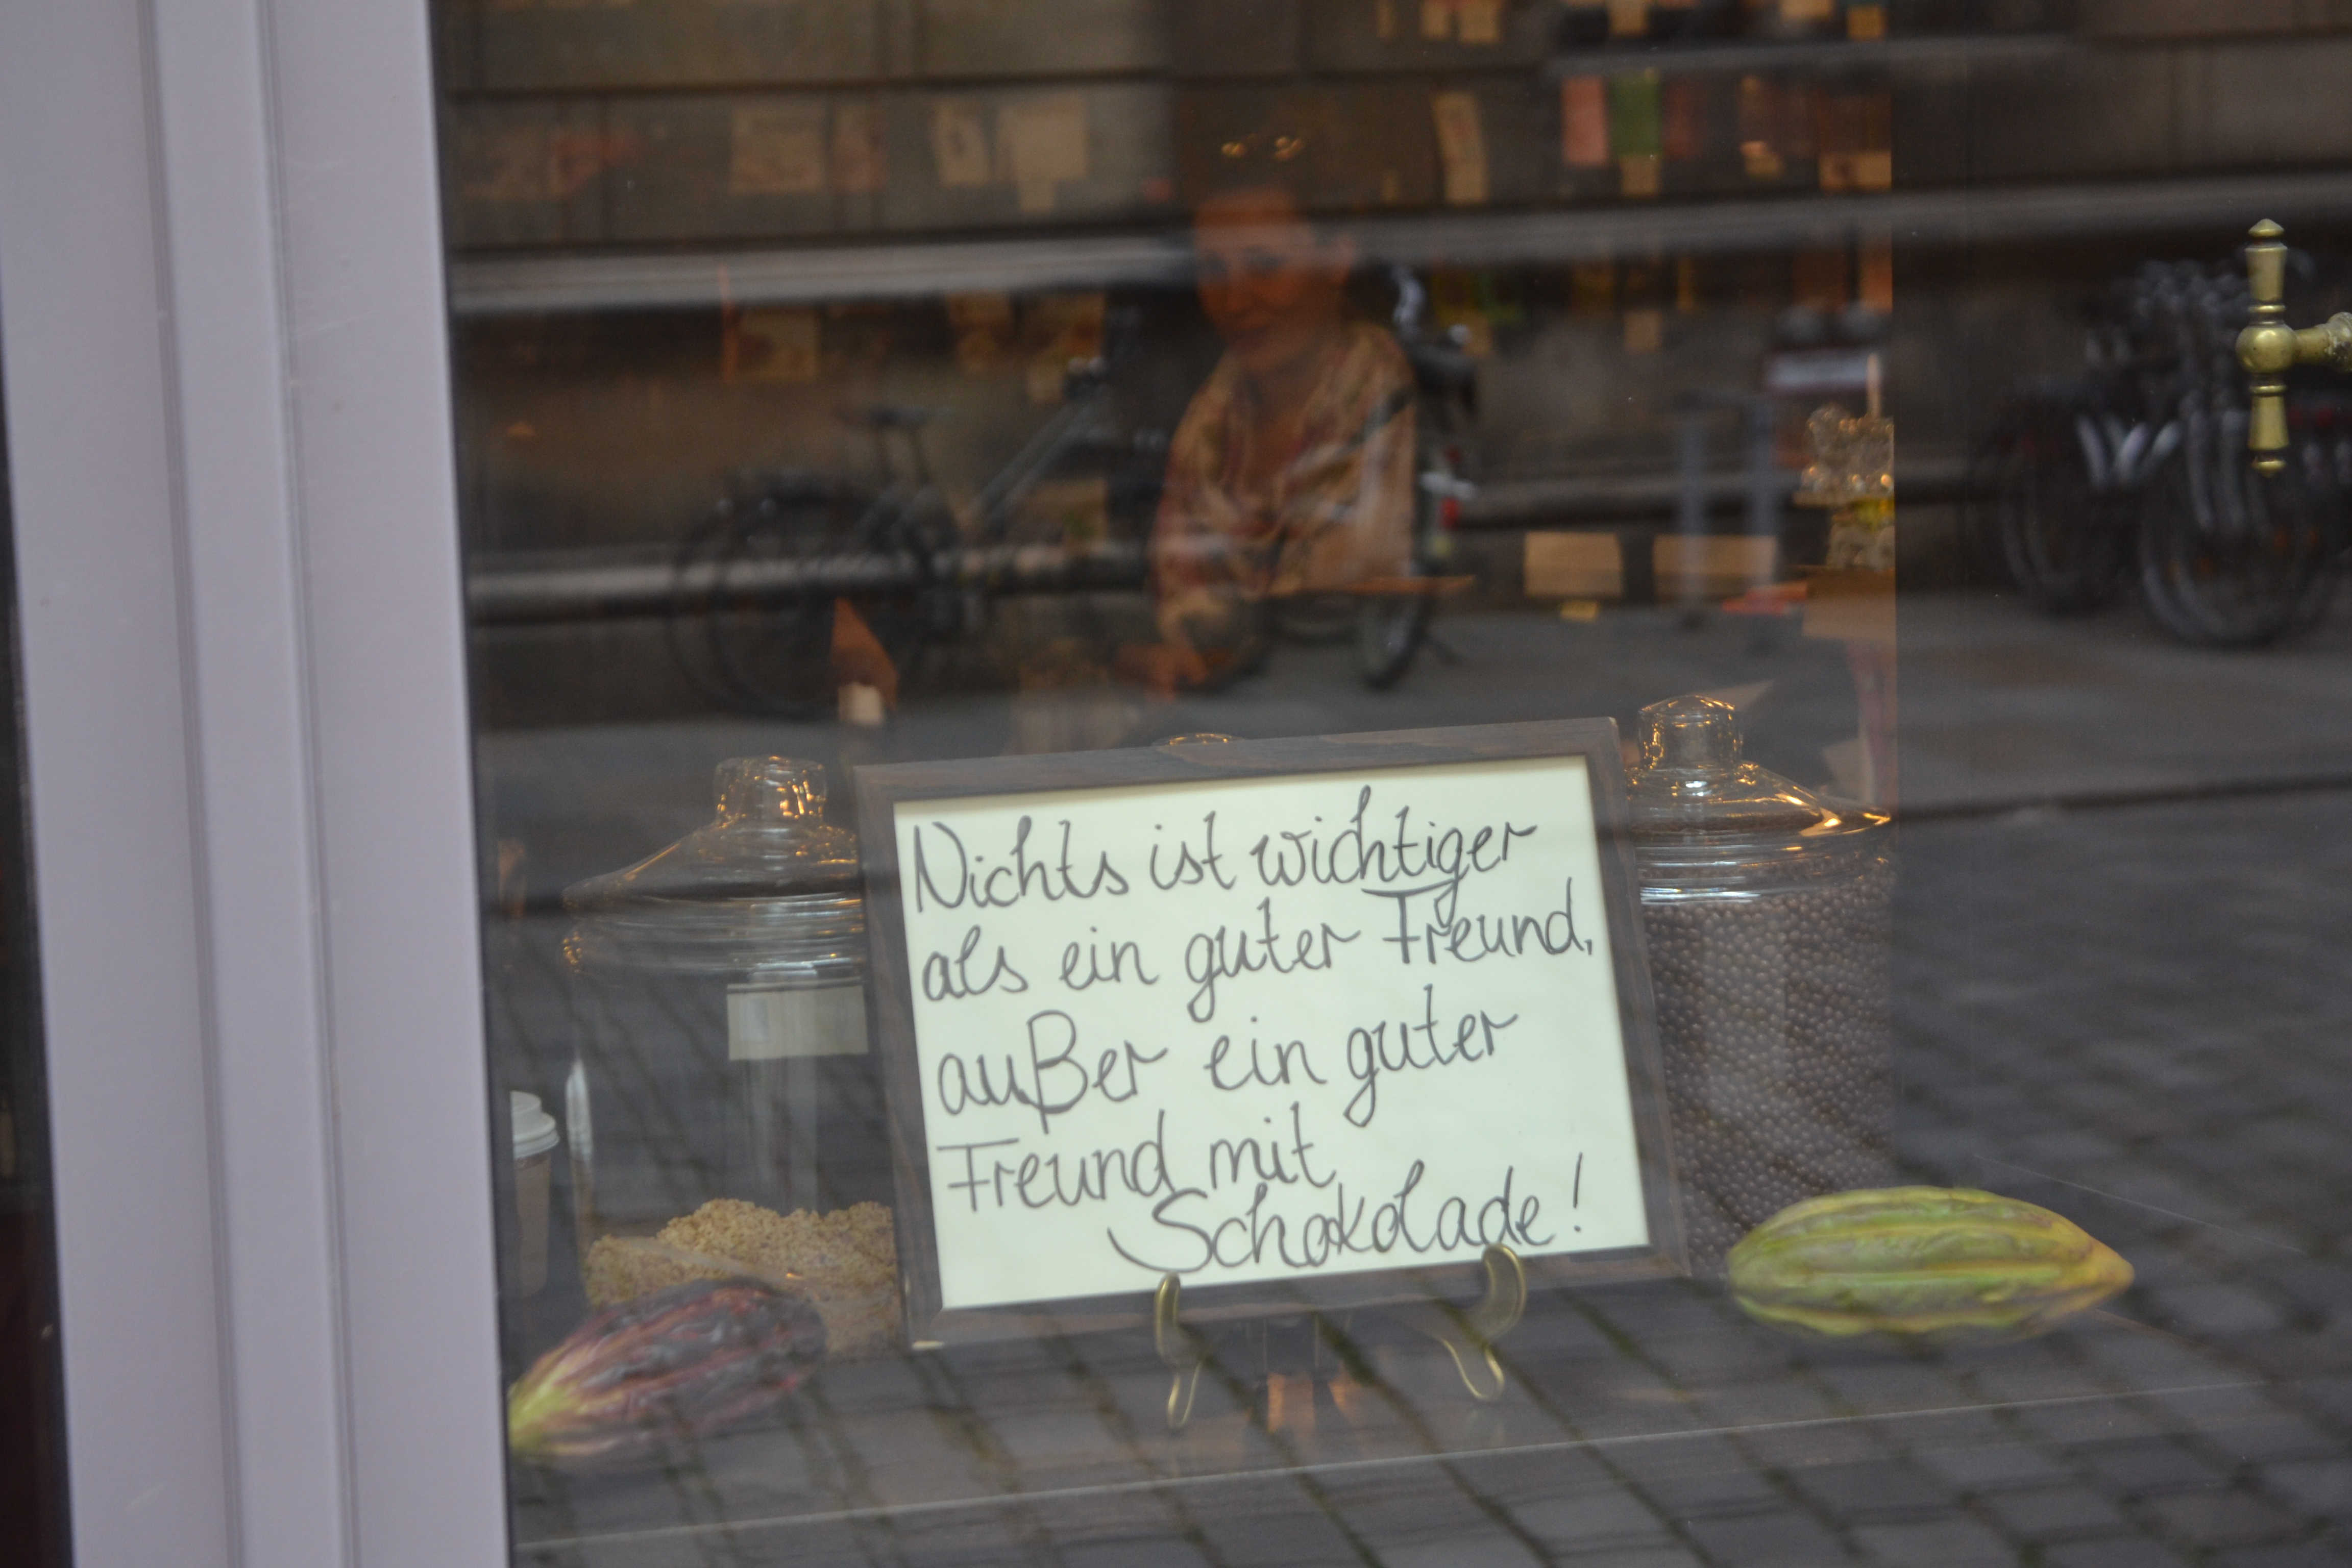 Nichts ist wichtiger
als ein guter Freund,
außer ein guter
Freund mit
Schokolade!